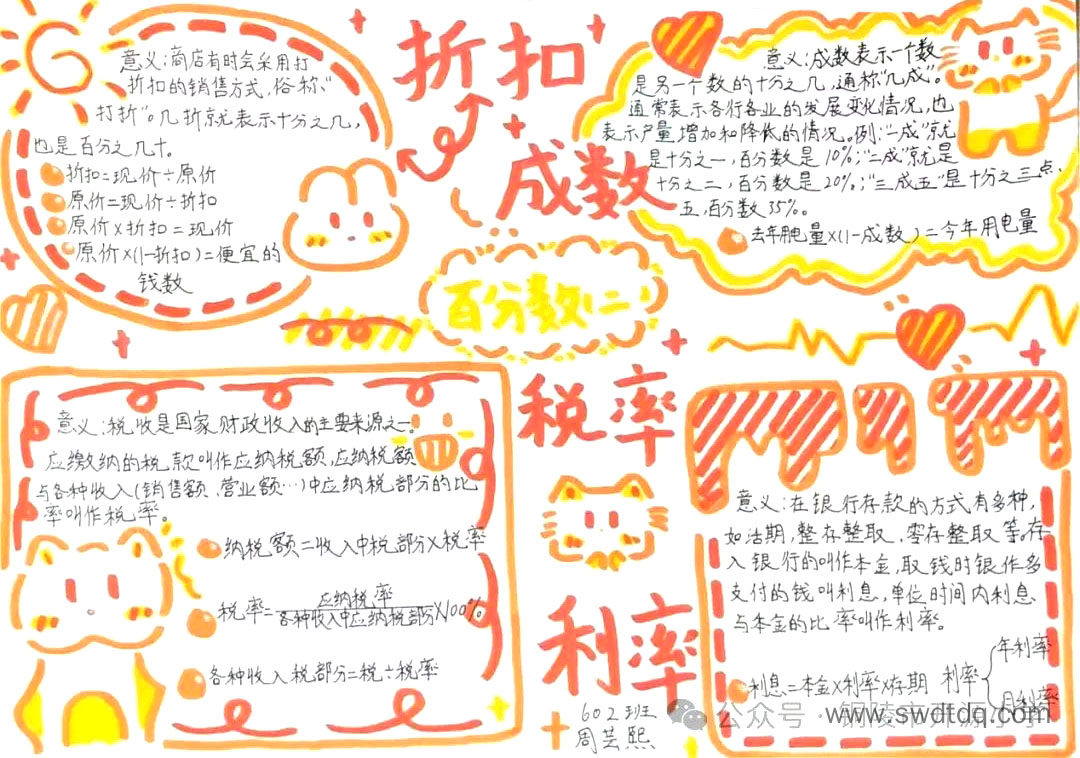 折扣
意义:商店有时会采用打
折扣的销售方式,俗称“
打折”。几折就表示十分之几,
也是百分之几十。
折扣=现价÷原价
原价=现价÷折扣
原价×折扣=现价
原价×(1-折扣)=便宜的
钱数
成数
意义:成数表示一个数
是另一个数的十分之几,通称“几成”。
通常表示各行各业的发展变化情况,也
表示产量增加和降低的情况。例:“一成”就
是十分之一,百分数是10%;“二成”就是
十分之二,百分数是20%;“三成五”是十分之三点
五,百分数35%。
去年用电量×(1-成数)=今年用电量
百分数(二)
税率
意义:税收是国家财政收入的主要来源之一。
应缴纳的税款叫作应纳税额,应纳税额
与各种收入(销售额、营业额…)中应纳税部分的比
率叫作税率。
纳税额=收入中税部分×税率
税率=应纳税率/各种收入中应纳税部分×100%
各种收入税部分=税÷税率
利率
意义:在银行存款的方式有多种,
如活期,整存整取,零存整取等。存
入银行的叫作本金,取钱时银作多
支付的钱叫利息,单位时间内利息
与本金的比率叫作利率。
利息=本金×利率×存期 利率
年利率
月利率
602班
周芸熙
公众号·铜陵
www.swdtdq.com